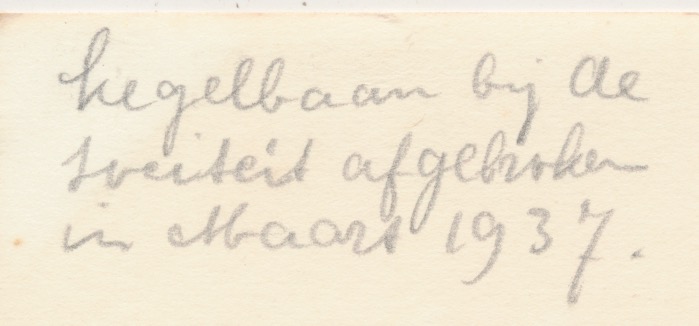 kegelbaan bij de
sociteit afgebroken
in Maart 1937.